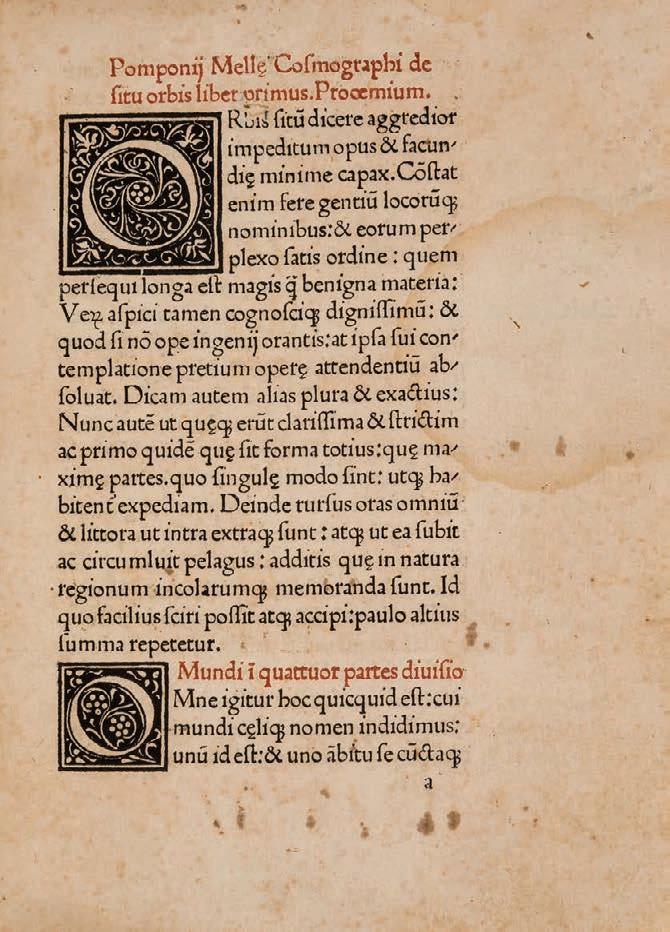 Pomponij Mellę Coſmographi de
ſitu orbis liber primus. Proœmium.
ORbis ſitū dicere aggredior
impeditum opus & facun⸗
dię minime capax. Cōſtat
enim fere gentiū locorūqꝫ
nominibus: & eorum per⸗
plexo ſatis ordine : quem
perſequi longa eſt magis q̄ benigna materia:
Veꝝ aſpici tamen cognoſciqꝫ digniſſimū: &
quod ſi nō ope ingenij orantis: at ipſa ſui con⸗
templatione pretium operę attendentiū ab⸗
ſoluat. Dicam autem alias plura & exactius:
Nunc autē ut quęqꝫ erūt clariſſima & ſtrictim
ac primo quidē quę ſit forma totius: quę ma⸗
ximę partes. quo ſingulę modo ſint: utqꝫ ha⸗
bitent̄ expediam. Deinde rurſus oras omniū
& littora ut intra extraqꝫ ſunt : atqꝫ ut ea ſubit
ac circumluit pelagus : additis quę in natura
regionum incolarumqꝫ memoranda ſunt. Id
quo facilius ſciri poſſit atqꝫ accipi: paulo altius
ſumma repetetur.
Mundi ī quattuor partes diuiſio
OMne igitur hoc quicquid eſt: cui
mundi cęliqꝫ nomen indidimus:
unū id eſt: & uno ābitu ſe cūctaqꝫ
a